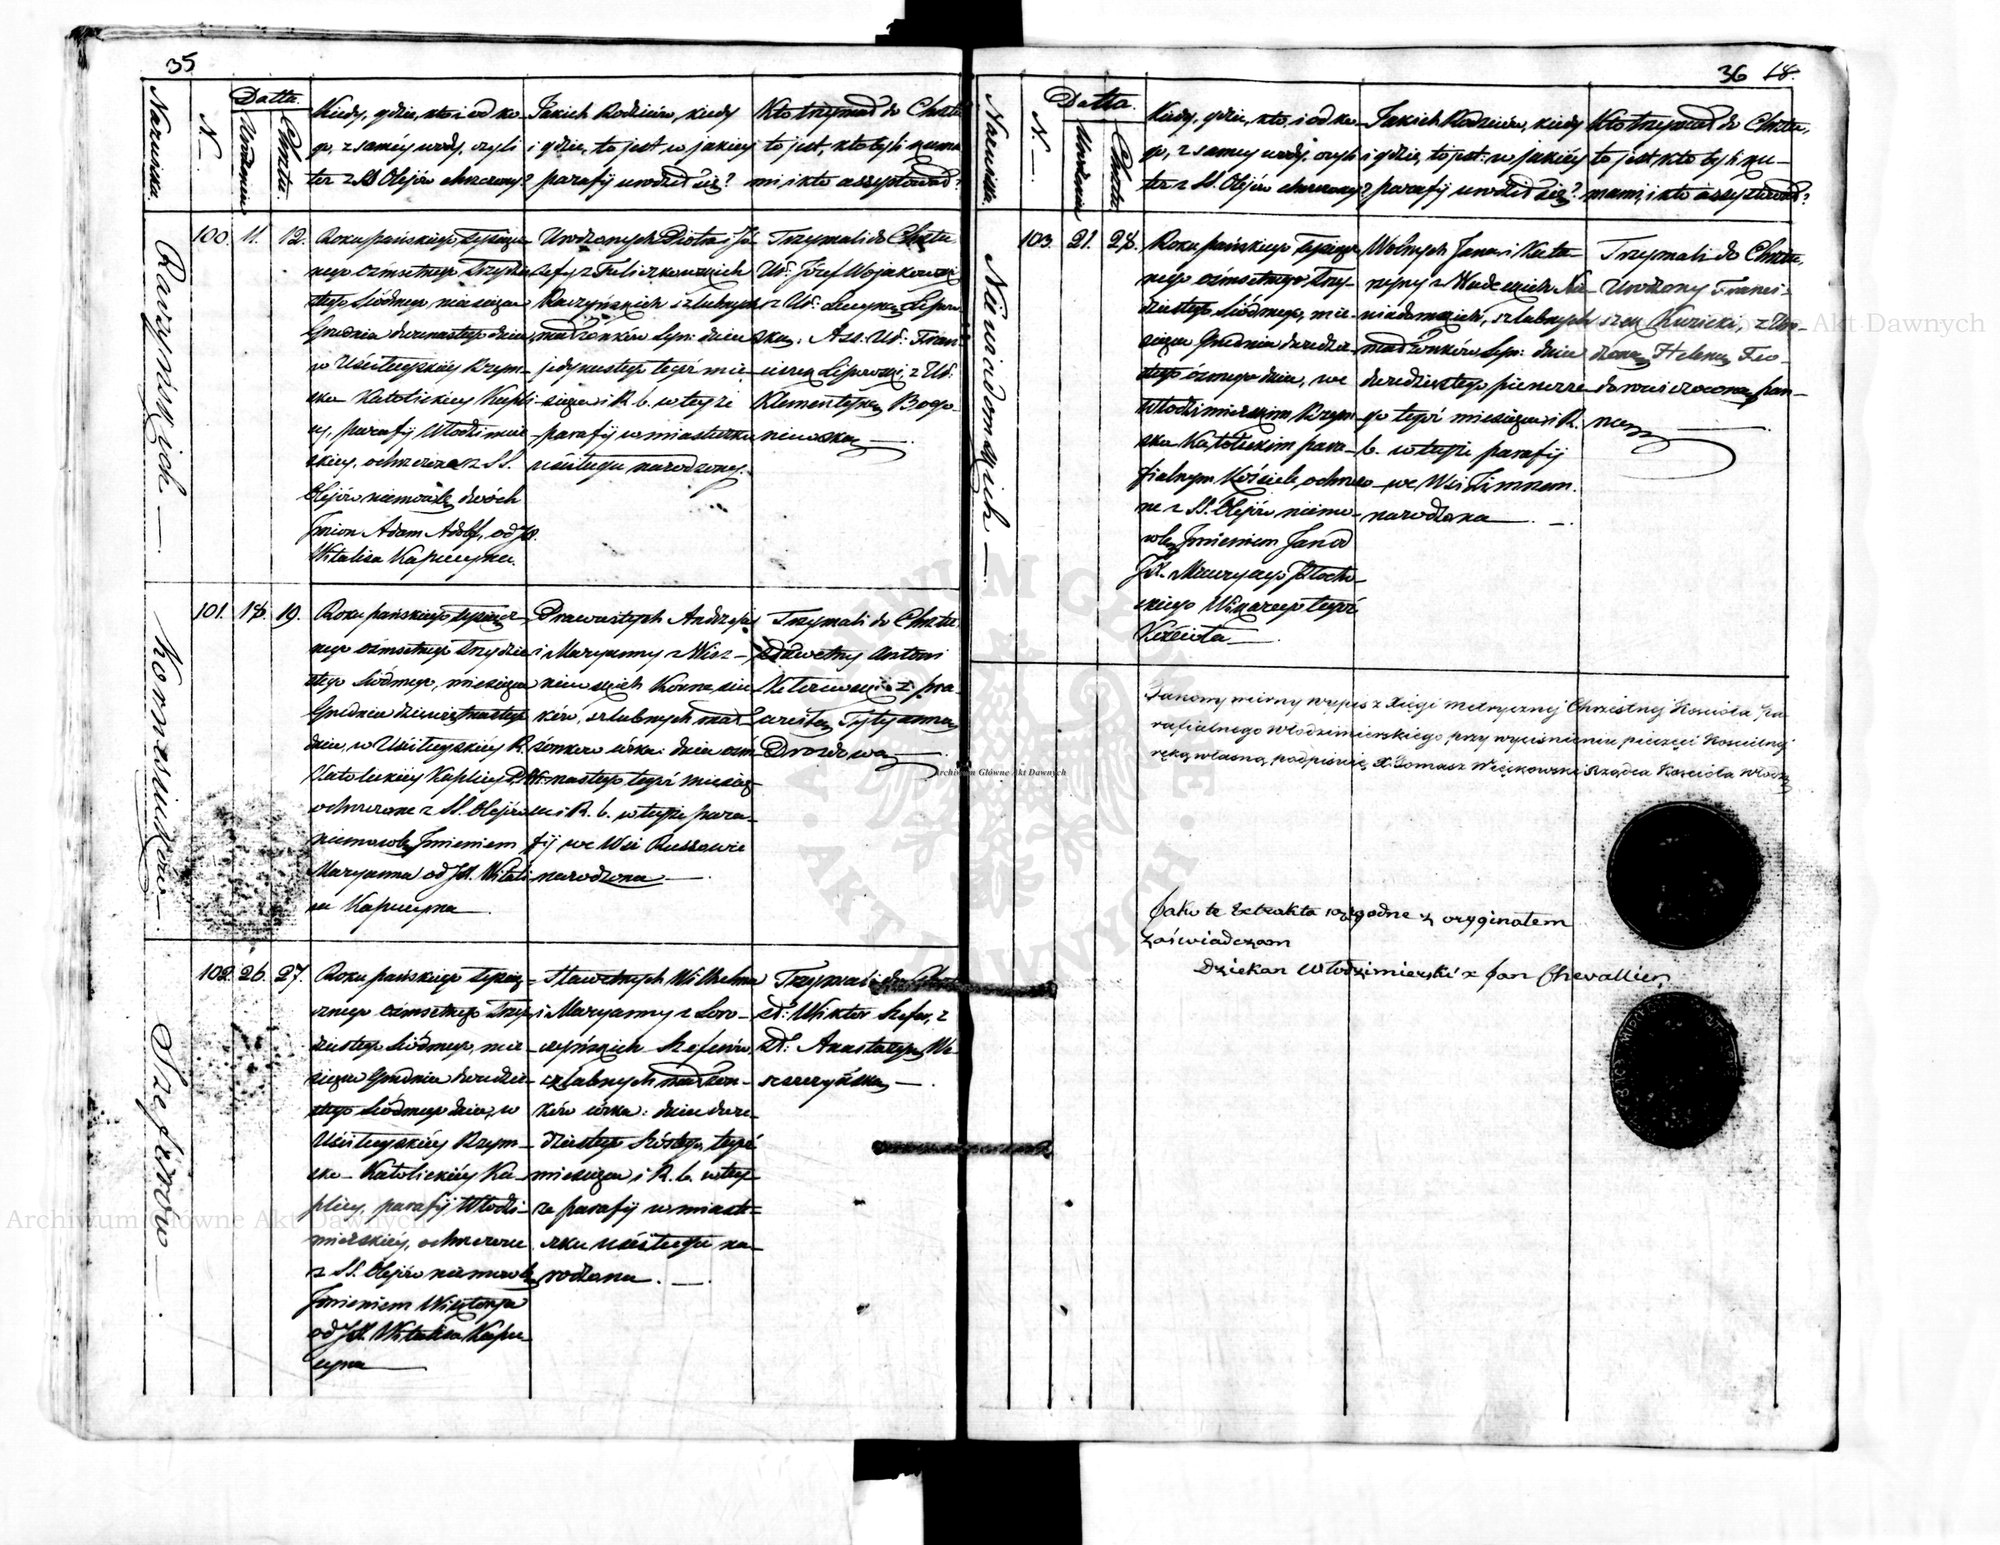 35
Nazwiska.
N.
Datta.
Urodzenia
Chrztu.
Kiedy, gdzie, kto i od ko-
go, z samey wody, czyli
też z SS. Olejów chrzczony?
Jakich Rodziców, kiedy
i gdzie, to jest w jakiey
parafij urodził się?
Kto trzymał do Chrztu
to jest, kto byli kuma
mi i kto assystował?
Raczyńskich
100. 11. 12.
Roku pańskiego tysiącz
nego ośmsetnego trzydzie
stego siódmego, miesiąca
Grudnia dwunastego dnia,
w Uściługskiéy Rzym-
sko Katolickiey Kapli
cy, parafij Włodzimier
skiey, ochrzczone z SS.
Olejów niemowlę dwóch
Imion Adam Adolf, od JX.
Witalisa Kapucyna.
Urodzonych Piotra i Jó-
zefy z
Raczyńskich ślubnych
małżonków Syn: dnia
jedynastego tegoż mie
siąca i R. b. w tejże
parafij w miasteczku
Uściługu narodzony.
Trzymali do Chrztu
Ur: Józef Wojakowski
z Ur: Lucyną Lipow
ską. Ass: Ur: Fran
ciszek Lipowski z Ur:
Klementyną Bogo-
niewską
Korneluków
101. 18. 19.
Roku pańskiego tysiącz
nego ośmsetnego trzydzie
stego siódmego, miesiąca
Grudnia dziewiętnastego
dnia, w Uściługskiéy R.
Katolickiey Kaplicy P. W.
ochrzczone z SS. Olejów
niemowlę Imieniem
Maryanna od JX. Witali
sa Kapucyna
Prawosławnych Andrzeja
i Maryanny z Wisz-
niewskich
ków, ślubnych mał
żonków córka: dnia ośm
nastego tegoż miesią
ca i R. b. w tejże para
fij we Wsi Russowie
narodzona
Trzymali do Chrztu
Sławetny Antoni
z pra-
Drozdową
Szeferów
102. 26. 27.
Roku pańskiego tysiąc-
cznego ośmsetnego Trzy
dziestego siódmego, mie
siąca Grudnia dwudzie-
stego Siódmego dnia, w
Uściługskiéy Rzym-
sko- Katolickiéy Ka
plicy, parafij Włodzi-
mierskiéy, ochrzczone
z SS. Olejów niemowlę
Imieniem Wiktorya
od JX. Witalisa Kapu
cyna
Sławetnych Wilhelma
i Maryanny z
Szeferów
ślubnych małżon-
ków córka: dnia dwu-
dziestego Szóstego, tegoż
miesiąca i R. b. w tey-
że parafij w miaste-
czku Uściługu na-
rodzona.
Trzymali do Chrztu
Sł: Wiktor Szefer, z
Sł: Anastazyą
36 18.
Nazwiska.
N.
Datta.
Urodzenia
Chrztu
Kiedy, gdzie, kto, i od ko-
go, z samey wody, czyli
też z SS. Olejów chrzczony?
Jakich Rodziców, kiedy
i gdzie, to jest: w jakiéy
parafij urodził się?
Kto trzymał do Chrztu,
to jest kto byli ku-
mami, i kto assystował?
Niewiadomskich
103. 21. 28.
Roku pańskiego tysiącz
nego ośmsetnego trzy-
dziestego Siódmego, mie-
siąca Grudnia dwudzie-
stego ósmego dnia, we
Włodzimierskim Rzym-
sko Katolickim para-
fialnym Kościele, ochrzczo-
ne z SS. Olejów niemo-
wlę Imieniem Jan od
JX. Maurycego
skiego Wikarego tegoż
Kościoła
Wolnych Jana i Kata-
rzyny z Nie-
wiadomskich, ślubnych
małżonków Syn: dnia
dwudziestego pierwsze
go tegoż miesiąca i R.
b. w tejże parafij
we Wsi Zimnem
narodzona
Trzymali do Chrztu,
Urodzony Franci-
szek Kurzicki, z Uro-
dzoną Heleną Feo-
pan-
ną
wierny wypis z Xięgi metrycznej Chrzestnej Kościoła Pa-
rafialnego Włodzimierskiego przy wyciśnieniu pieczęci Kościelnej
ręką własną podpisuję X. Tomasz Rządca Kościoła Włodz
Jako te Extrakta są zgodne z oryginałem
zaświadczam
Dziekan Włodzimierski x Jan Chevallier
Archiwum Główne Akt Dawnych
Archiwum Główne Akt Dawnych
Akt Dawnych